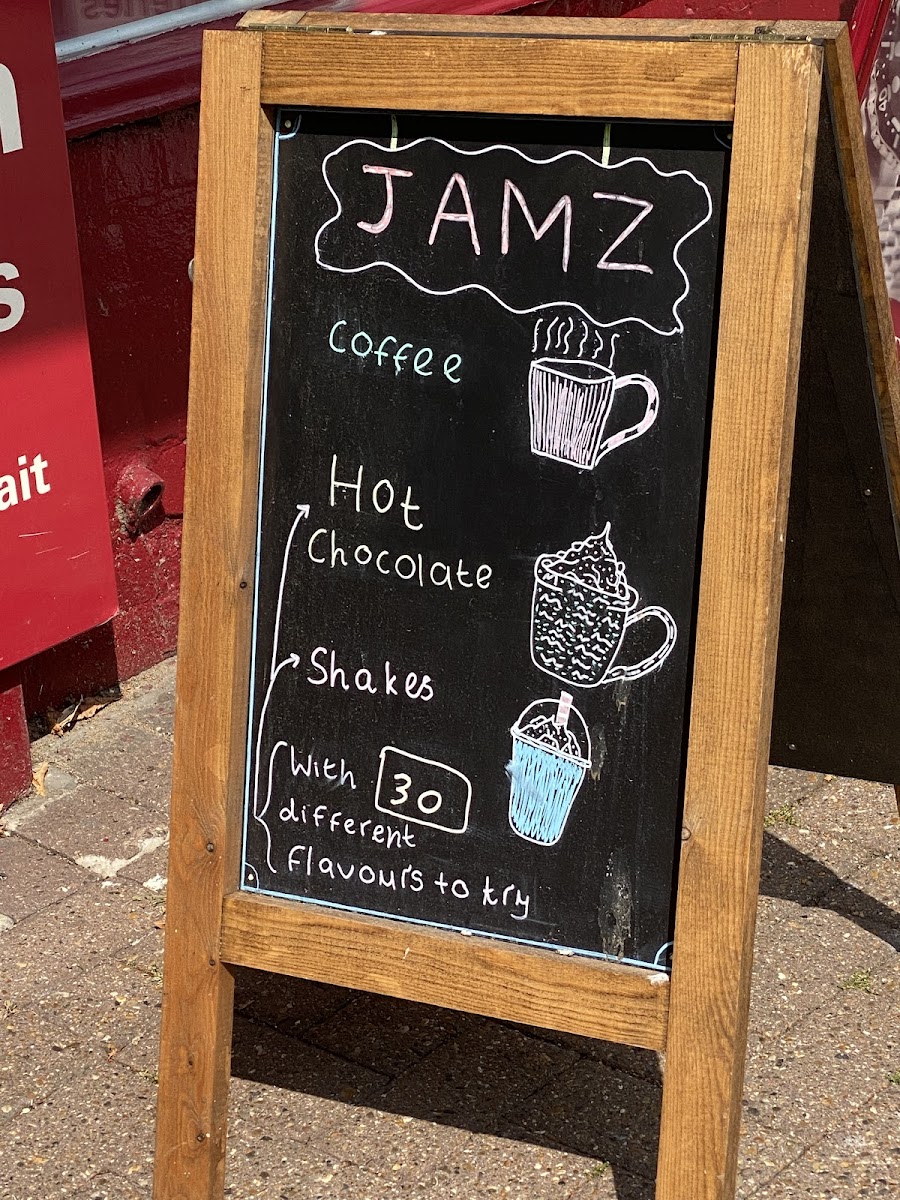 JAMZ
Coffee
Hot
Chocolate
Shakes
With 30
different
flavours to try
ait